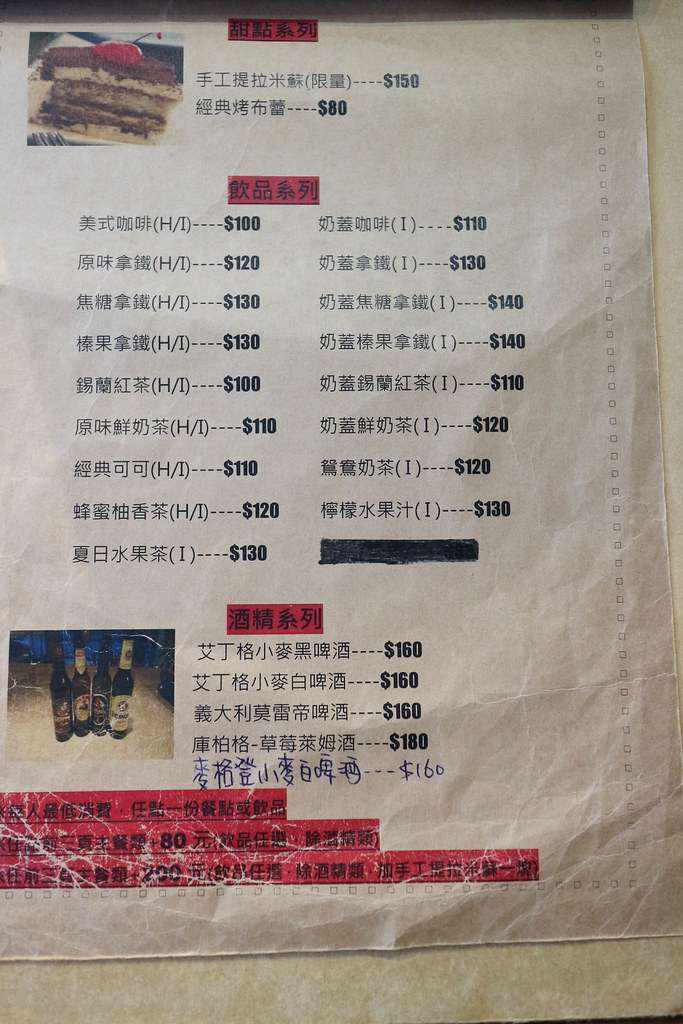 甜點系列
手工提拉米蘇(限量)----$150
經典烤布蕾----$80
飲品系列
美式咖啡(H/I)----$100
奶蓋咖啡(I)----$110
原味拿鐵(H/I)----$120
奶蓋拿鐵(I)----$130
焦糖拿鐵(H/I)----$130
奶蓋焦糖拿鐵(I)----$140
榛果拿鐵(H/I)----$130
奶蓋榛果拿鐵(I)----$140
錫蘭紅茶(H/I)----$100
奶蓋錫蘭紅茶(I)----$110
原味鮮奶茶(H/I)----$110
奶蓋鮮奶茶(I)----$120
經典可可(H/I)----$110
鴛鴦奶茶(I)----$120
蜂蜜柚香茶(H/I)----$120
檸檬水果汁(I)----$130
夏日水果茶(I)----$130
酒精系列
艾丁格小麥黑啤酒----$160
艾丁格小麥白啤酒----$160
義大利莫雷帝啤酒----$160
庫柏格-草莓萊姆酒----$180
麥格登小麥白啤酒---$160
人最低消費．任點一份餐點或飲品
任 前二頁主餐類+80 元(飲品任選．除酒精類)
任前二頁主餐類+200 元(飲品任選．除酒精類．加手工提拉米蘇一塊)